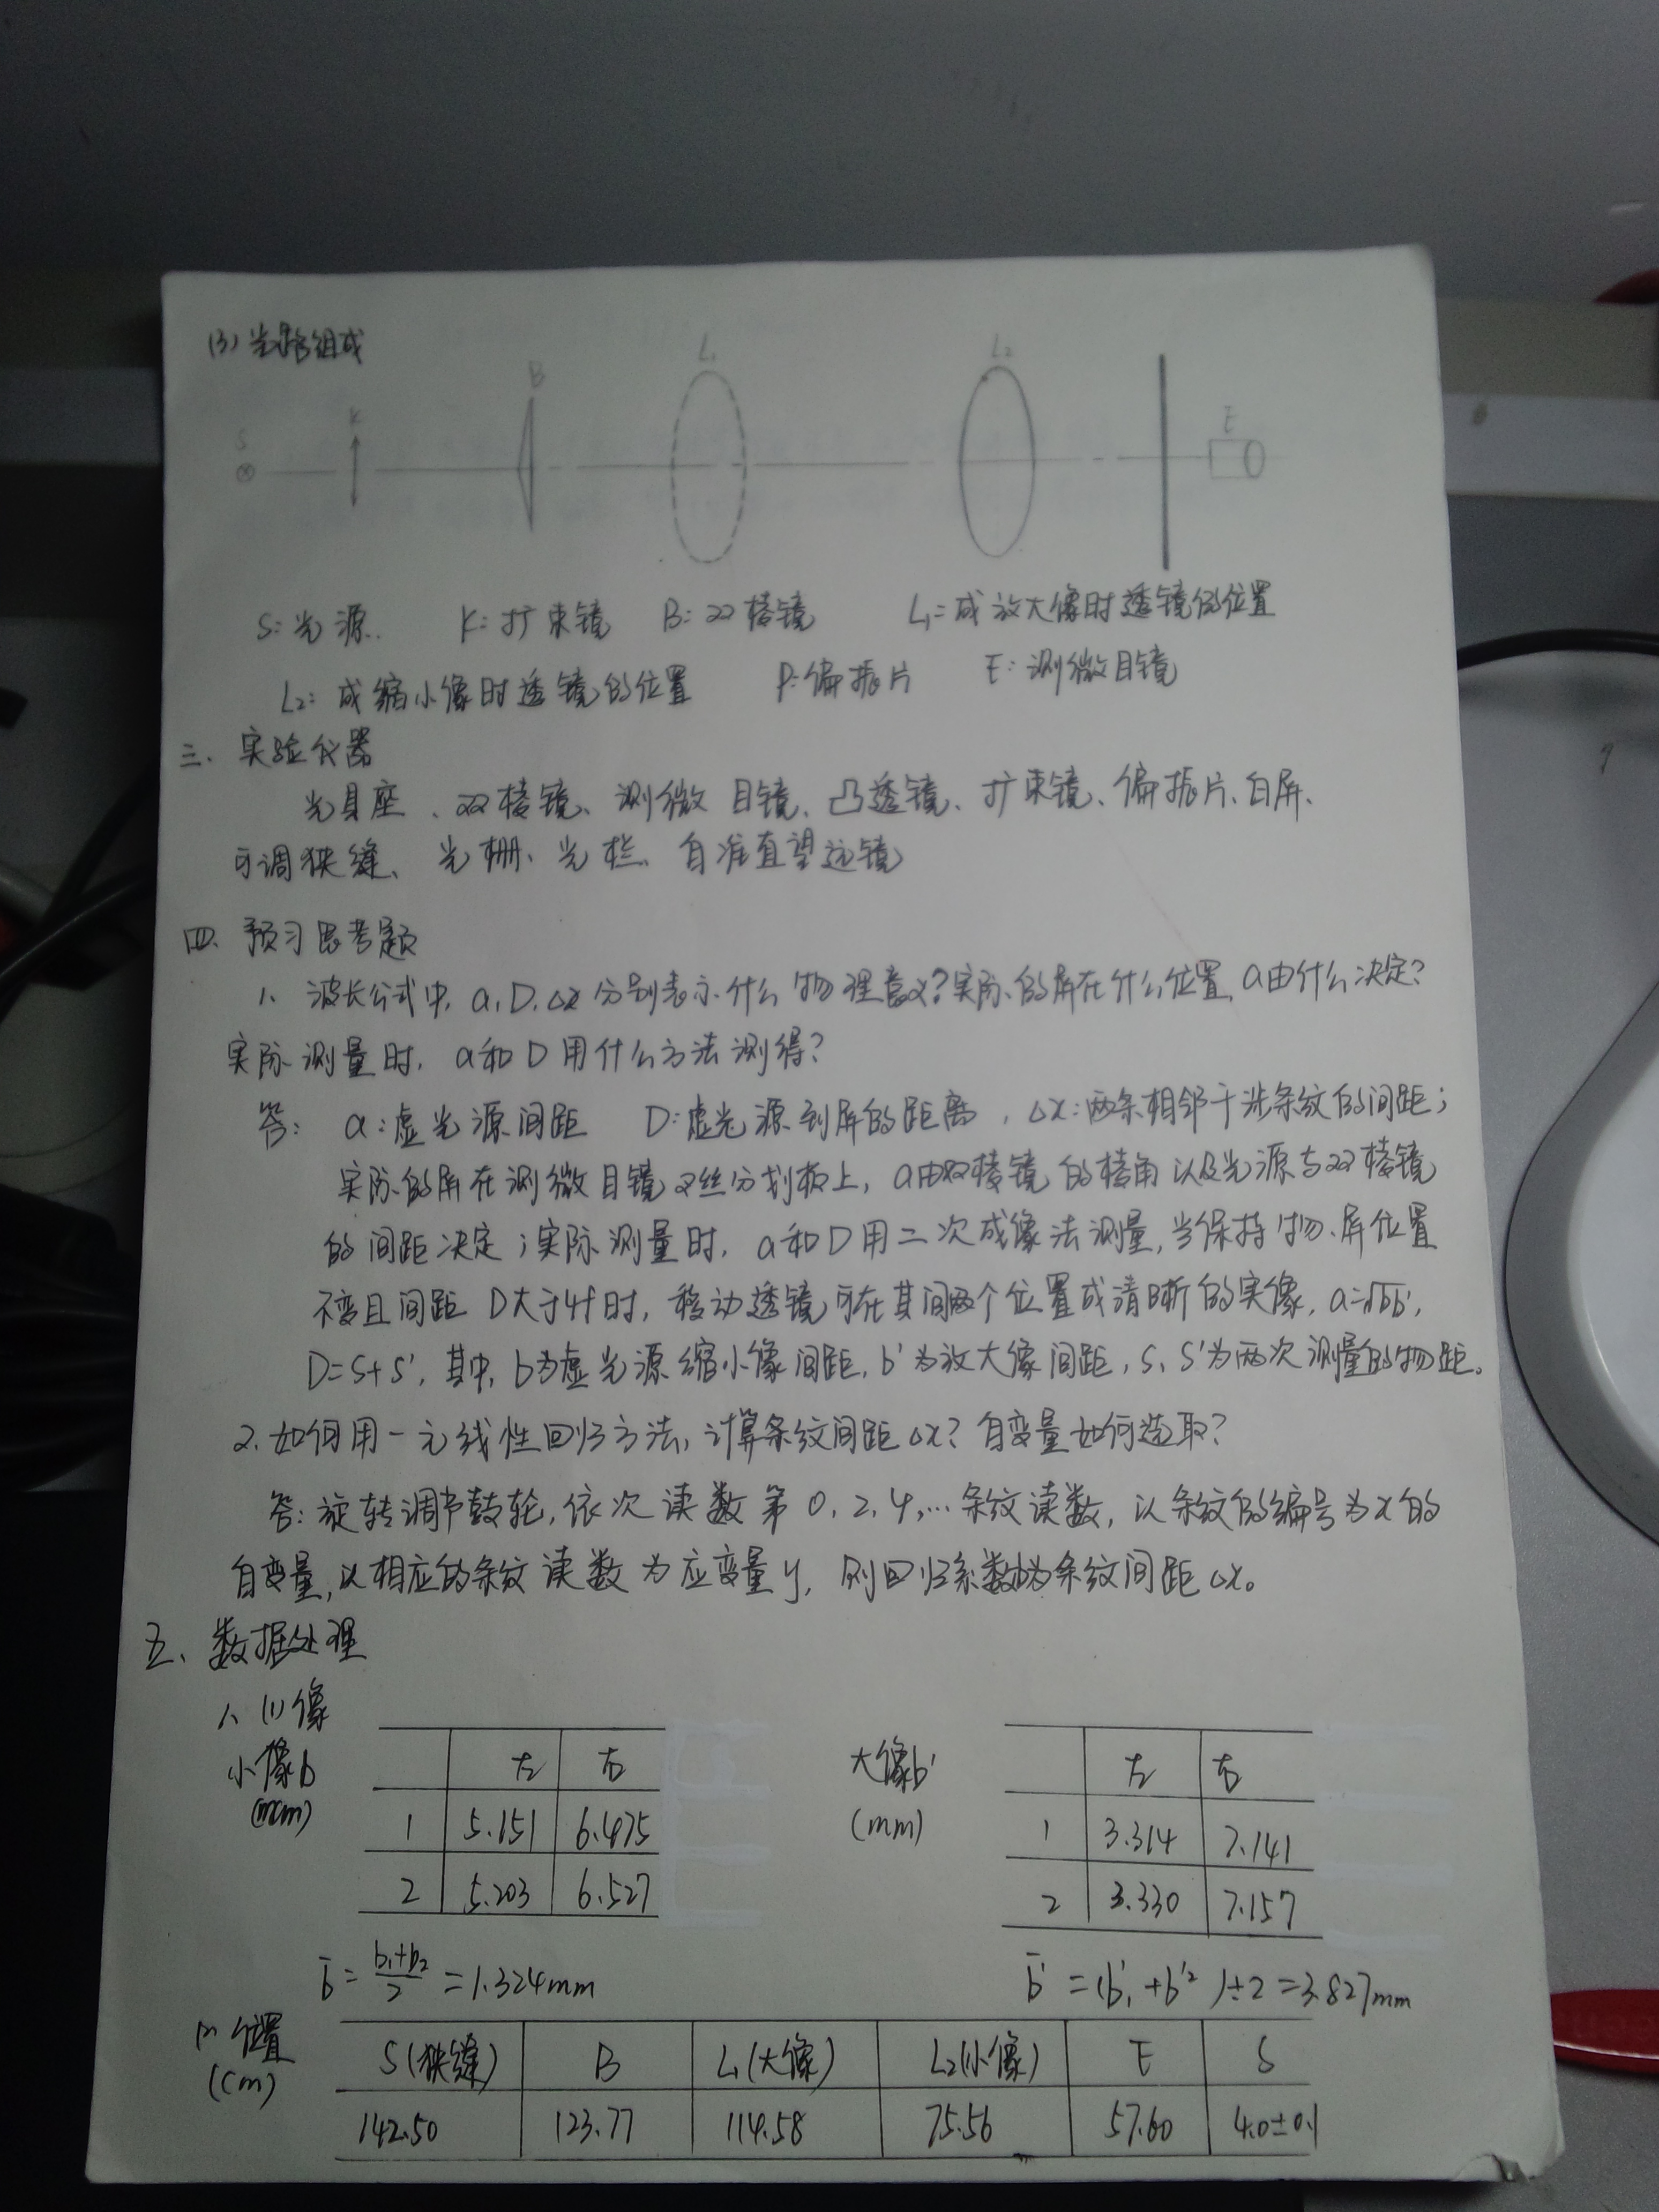 (3) 光路组成
S K B L₁ L₂ E
S: 光源. K: 扩束镜 B: 双棱镜 L₁=成放大像时透镜的位置
L₂: 成缩小像时透镜的位置 P: 偏振片 E: 测微目镜
三、实验仪器
光具座、双棱镜、测微目镜、凸透镜、扩束镜、偏振片、白屏、
可调狭缝、光栅、光栏、自准直望远镜
四、预习思考题
1、波长公式中, a, D, Δx 分别表示什么物理意义?实际的屏在什么位置, a由什么决定?
实际测量时, a和D用什么方法测得?
答: a:虚光源间距 D:虚光源到屏的距离, Δx:两条相邻干涉条纹的间距;
实际的屏在测微目镜叉丝分划板上, a由双棱镜的棱角以及光源与双棱镜
的间距决定;实际测量时, a和D用二次成像法测量,当保持物、屏位置
不变且间距D大于4f时, 移动透镜可在其间两个位置成清晰的实像, a=√bb',
D=S+S', 其中, b为虚光源缩小像间距, b'为放大像间距, S、S'为两次测量的物距。
2、如何用一元线性回归方法,计算条纹间距Δx?自变量如何选取?
答:旋转调节鼓轮,依次读数第0,2,4,…条纹读数, 以条纹的编号为x的
自变量,以相应的条纹读数为应变量y, 则回归系数b为条纹间距Δx。
五、数据处理
1、(1)像
小像b (mm) 左 右
1 5.151 6.475
2 5.203 6.527
大像b' (mm) 左 右
1 3.314 7.141
2 3.330 7.157
b̄ = (b₁+b₂)/2 = 1.324mm
b̄' = (b'₁+b'₂)÷2=3.827mm
位置 (cm) S(狭缝) B L₁(大像) L₂(小像) E S
142.50 123.77 114.58 75.56 57.60 4.0±0.1